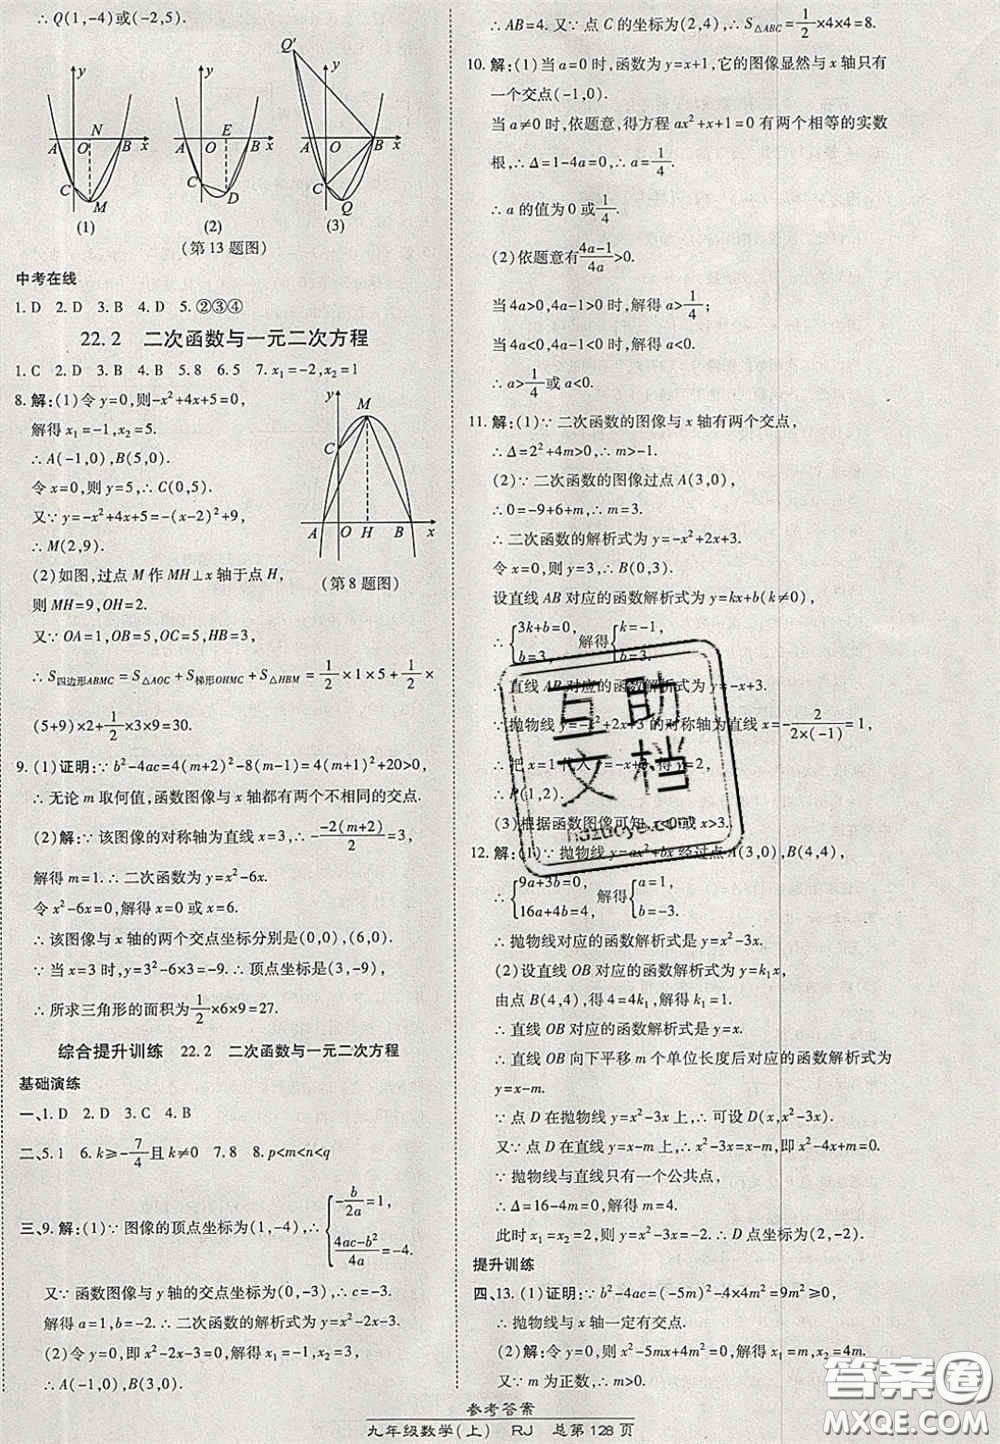 ∴Q(1,-4)或(-2,5).
Q'
y
y
y
N
E
A O B x
A O B x
A O B x
C
M
C
D
C
Q
(1)
(2)
(3)
(第13题图)
中考在线
1.D 2.D 3.B 4.D 5.②③④
22.2 二次函数与一元二次方程
1.C 2.D 3.B 4.B 5.8 6.5 7.x₁=-2,x₂=1
8.解:(1)令y=0,则-x²+4x+5=0,
解得x₁=-1,x₂=5.
∴A(-1,0),B(5,0).
令x=0,则y=5,∴C(0,5).
又∵y=-x²+4x+5=-(x-2)²+9,
∴M(2,9).
(2)如图,过点M作MH⊥x轴于点H,
则MH=9,OH=2.
y
M
C
A O H B x
(第8题图)
又∵OA=1,OB=5,OC=5,HB=3,
∴S四边形ABMC=S△AOC+S梯形OHMC+S△HBM=1/2×1×5+1/2×
(5+9)×2+1/2×3×9=30.
9.(1)证明:∵b²-4ac=4(m+2)²-8(m-1)=4(m+1)²+20>0,
∴无论m取何值,函数图像与x轴都有两个不相同的交点.
(2)解:∵该图像的对称轴为直线x=3,∴-2(m+2)/2=3,
解得m=1.∴二次函数为y=x²-6x.
令x²-6x=0,解得x=0或x=6.
∴该图像与x轴的两个交点坐标分别是(0,0),(6,0).
∵当x=3时,y=3²-6×3=-9.∴顶点坐标是(3,-9).
∴所求三角形的面积为1/2×6×9=27.
综合提升训练 22.2 二次函数与一元二次方程
基础演练
一、1.D 2.D 3.C 4.B
二、5.1 6.k≥-7/4且k≠0 7.8 8.p<m<n<q
三、9.解:(1)∵图像的顶点坐标为(1,-4),∴{-b/2a=1,
(4ac-b²)/4a=-4.
又∵函数图像与y轴的交点坐标为(0,-3),∴c=-3.
∴a=1,b=-2.∴二次函数的解析式为y=x²-2x-3.
(2)令y=0,即x²-2x-3=0,解得x₁=-1,x₂=3,
∴A(-1,0),B(3,0).
∴AB=4.又∵点C的坐标为(2,4),∴S△ABC=1/2×4×4=8.
10.解:(1)当a=0时,函数为y=x+1,它的图像显然与x轴只有
一个交点(-1,0).
当a≠0时,依题意,得方程ax²+x+1=0有两个相等的实数
根,∴Δ=1-4a=0,∴a=1/4.
∴a的值为0或1/4.
(2)依题意有(4a-1)/4a>0.
当4a>0,4a-1>0时,解得a>1/4;
当4a<0,4a-1<0时,解得a<0.
∴a>1/4或a<0.
11.解:(1)∵二次函数的图像与x轴有两个交点,
∴Δ=2²+4m>0,∴m>-1.
(2)∵二次函数的图像过点A(3,0),
∴0=-9+6+m,∴m=3.
∴二次函数的解析式为y=-x²+2x+3.
令x=0,则y=3,∴B(0,3).
设直线AB对应的函数解析式为y=kx+b(k≠0),
∴{3k+b=0, b=3, 解得{k=-1, b=3.
∴直线AB对应的函数解析式为y=-x+3.
∵抛物线y=-x²+2x+3的对称轴为直线x=-2/(2×(-1))=1,
∴把x=1代入y=-x+3,得y=2,
∴P(1,2).
(3)根据函数图像可知,x<0或x>3.
12.解:(1)∵抛物线y=ax²+bx经过点A(3,0),B(4,4),
∴{9a+3b=0, 16a+4b=4, 解得{a=1, b=-3.
∴抛物线对应的函数解析式是y=x²-3x.
(2)设直线OB对应的函数解析式为y=k₁x,
由点B(4,4),得4=4k₁,解得k₁=1.
∴直线OB对应的函数解析式是y=x.
∴直线OB向下平移m个单位长度后对应的函数解析式为
y=x-m.
∵点D在抛物线y=x²-3x上,∴可设D(x,x²-3x).
又∵点D在直线y=x-m上,∴x²-3x=x-m,即x²-4x+m=0.
∵抛物线与直线只有一个公共点,
∴Δ=16-4m=0,解得m=4.
此时x₁=x₂=2,y=x²-3x=-2,∴D点坐标为(2,-2).
提升训练
四、13.(1)证明:∵b²-4ac=(-5m)²-4×4m²=9m²≥0,
∴抛物线与x轴一定有交点.
(2)解:令y=0,则x²-5mx+4m²=0,解得x₁=m,x₂=4m.
又∵m为正数,∴m>0.
互助
文档
hdzuoye.com
答案圈
MXQE.COM
参考答案
九年级数学(上) RJ 总第128页